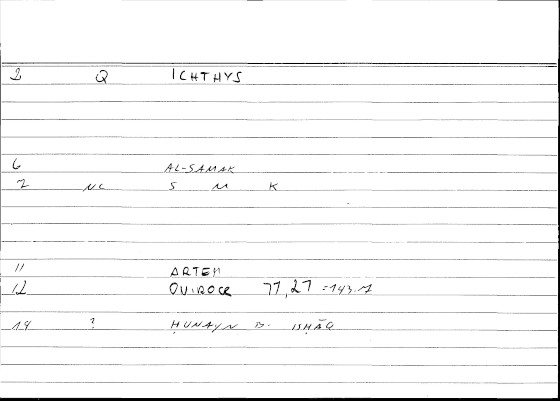 2 Q ICHTHYS
6 AL-SAMAK
7 NC S M K
11 ARTEM
12 QUIROCR 77,27 =143.1
14 ? ḤUNAYN B. ISḤĀQ